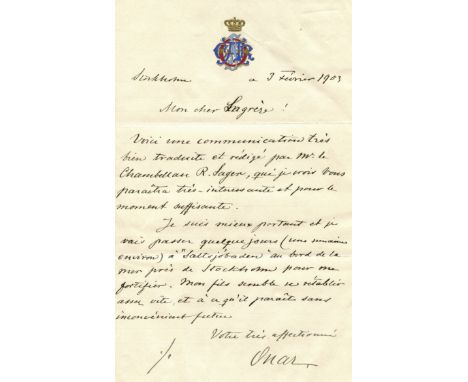 Stockholm a 3 Février 1903
Mon cher Lagrèze !
Voici une communication très
bien traduite et rédigé par Mr. le
Chambellan R. Sager, qui je crois vous
paraîtra très-interessante et pour le
moment suffisante.
Je suis mieux portant et je
vais passer quelque jours (une semaine
environ) à "Saltsjöbaden" au bord de la
mer près de Stockholm pour me
fortifier. Mon fils semble se rétablir
assez vite, et à ce qu'il paraîte sans
inconvénient
Votre très affectionné
Oscar